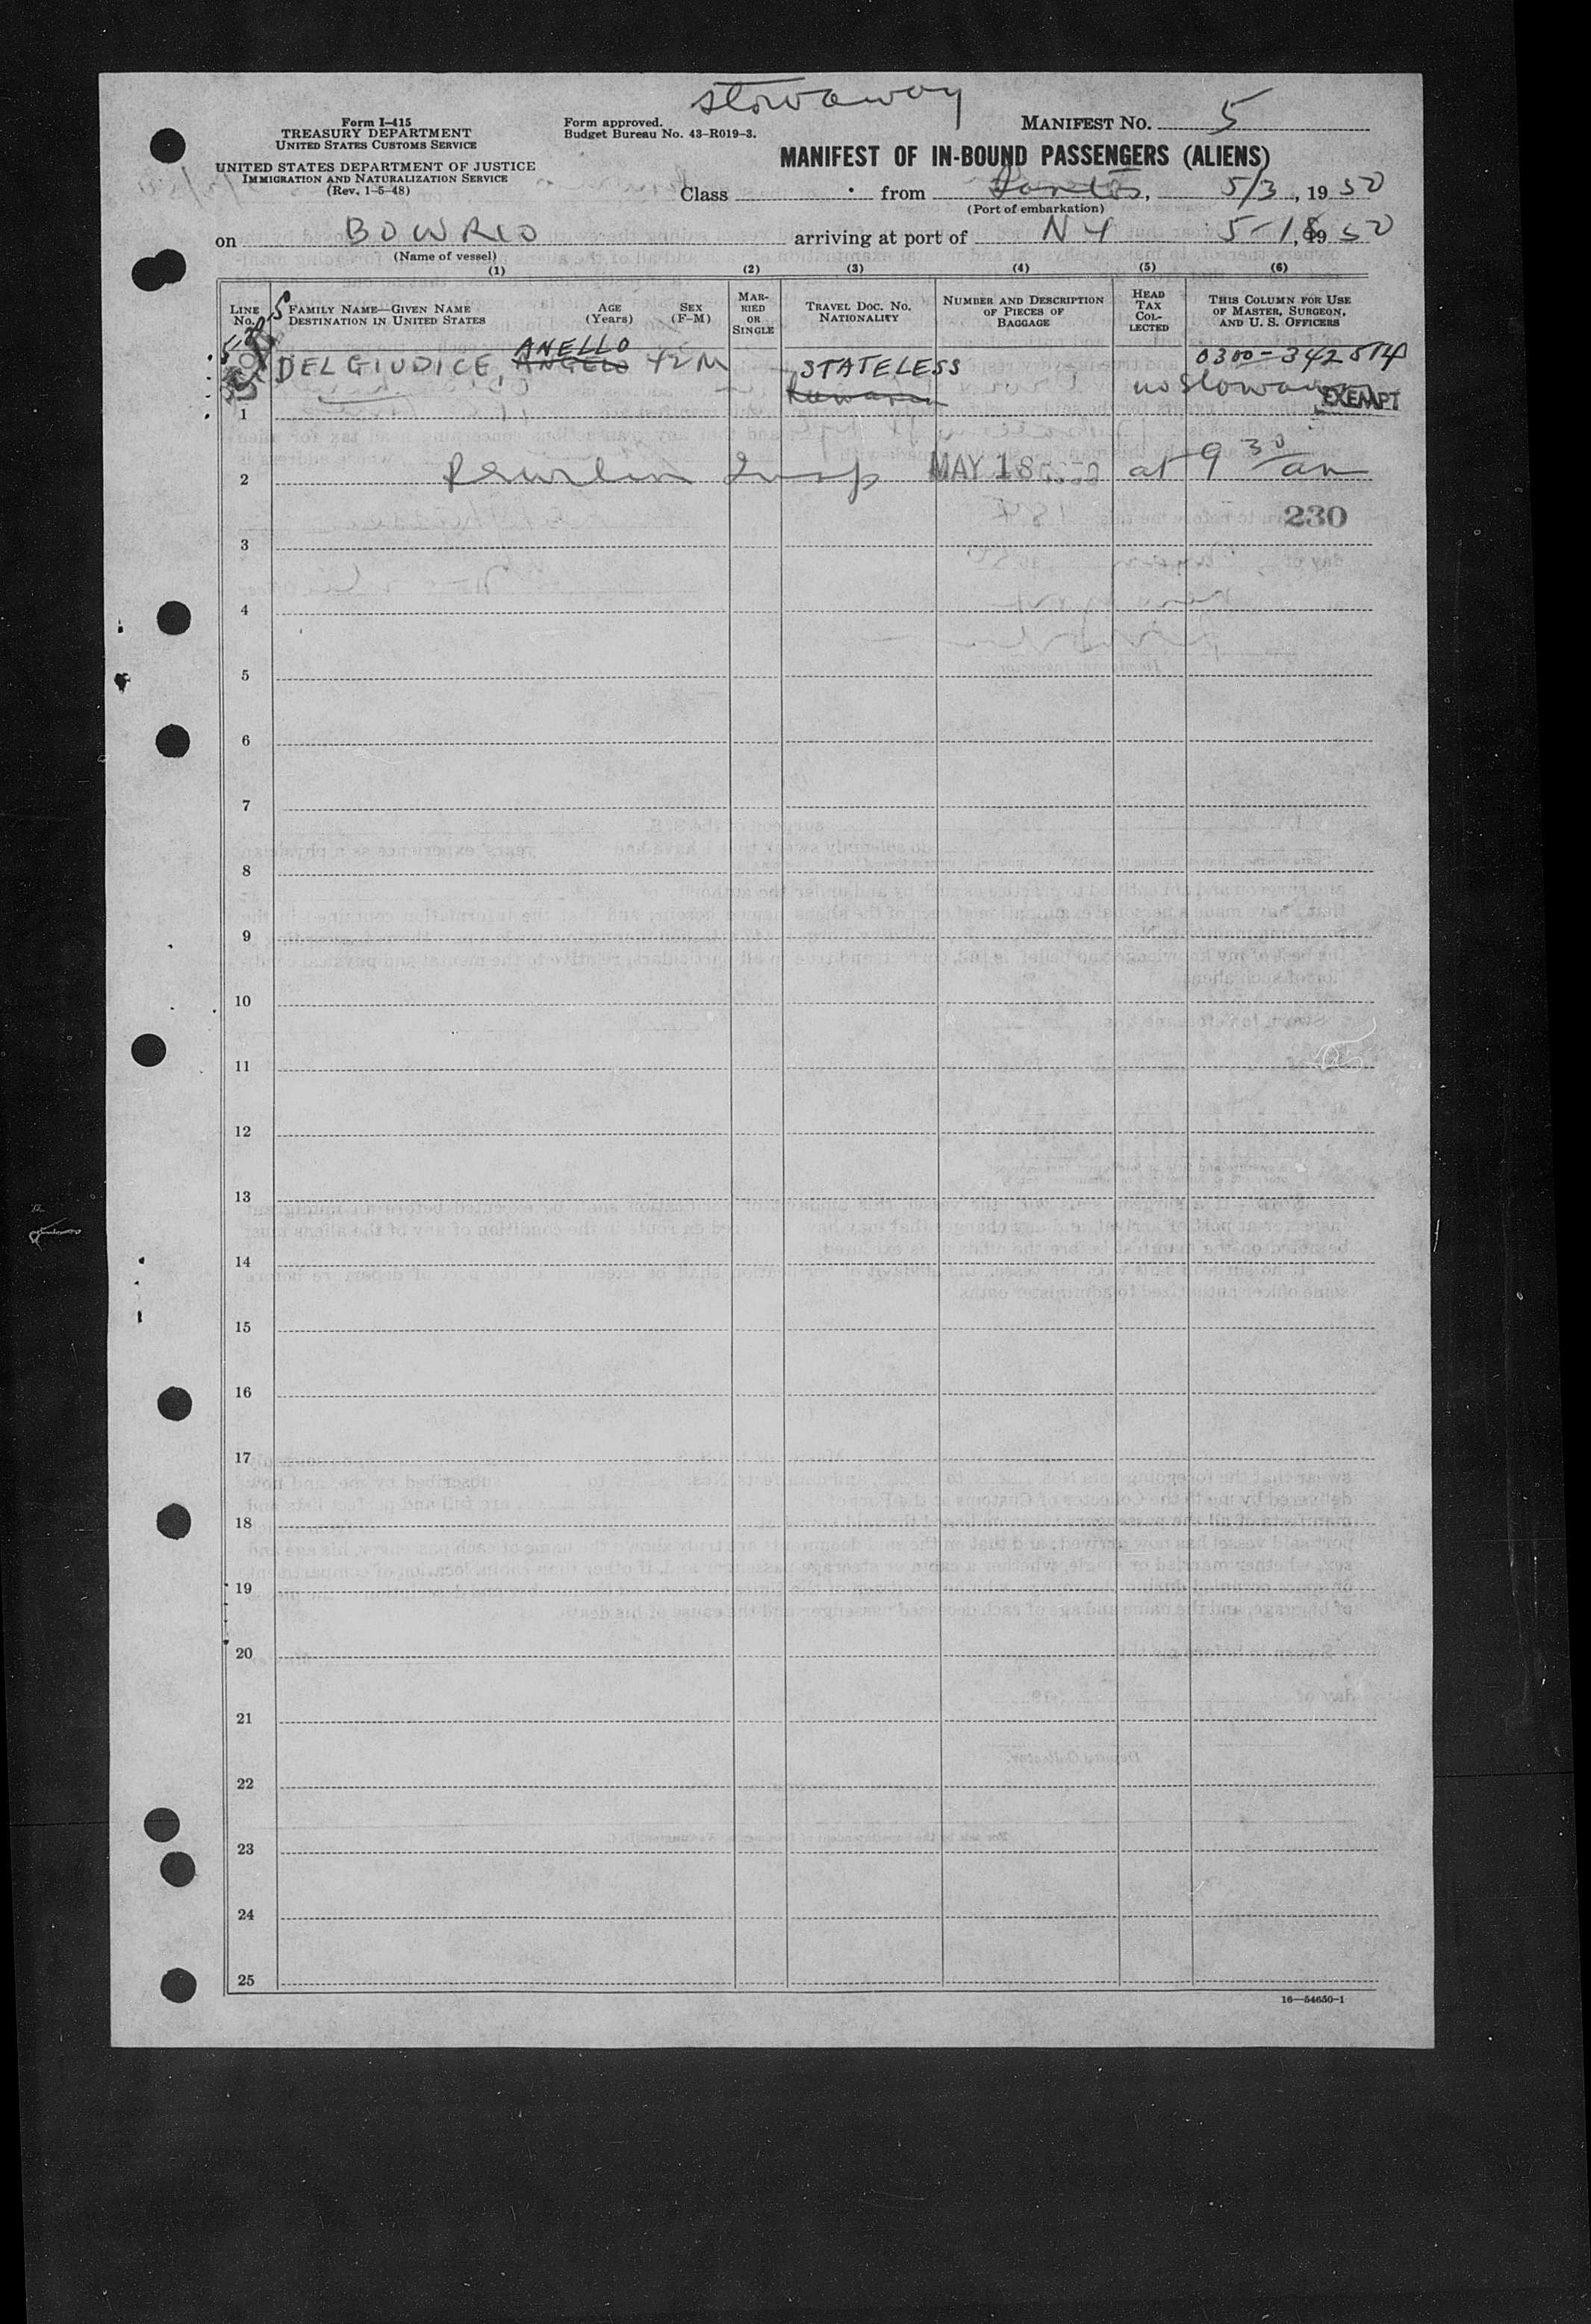 stowaway
Form I-415
TREASURY DEPARTMENT
UNITED STATES CUSTOMS SERVICE
UNITED STATES DEPARTMENT OF JUSTICE
IMMIGRATION AND NATURALIZATION SERVICE
(Rev. 1-5-48)
Form approved.
Budget Bureau No. 43-R019-3.
MANIFEST NO. 5
MANIFEST OF IN-BOUND PASSENGERS (ALIENS)
Class from Santos, 5/3, 1950
(Port of embarkation)
on BOWRIO arriving at port of NY 5-18, 1950
(Name of vessel)
(1) (2) (3) (4) (5) (6)
LINE No.
FAMILY NAME—GIVEN NAME
DESTINATION IN UNITED STATES
AGE
(Years)
SEX
(F-M)
MAR-
RIED
OR
SINGLE
TRAVEL DOC. NO.
NATIONALITY
NUMBER AND DESCRIPTION
OF PIECES OF
BAGGAGE
HEAD
TAX
COL-
LECTED
THIS COLUMN FOR USE
OF MASTER, SURGEON,
AND U. S. OFFICERS
ANELLO
DEL GIUDICE, ANGELO 42 M STATELESS 0300-342514
no Stowaway EXEMPT
1
2 Insp MAY 18 1950 at 9 30/am
230
3
4
5
6
7
8
9
10
11
12
13
14
15
16
17
18
19
20
21
22
23
24
25
16—54650-1